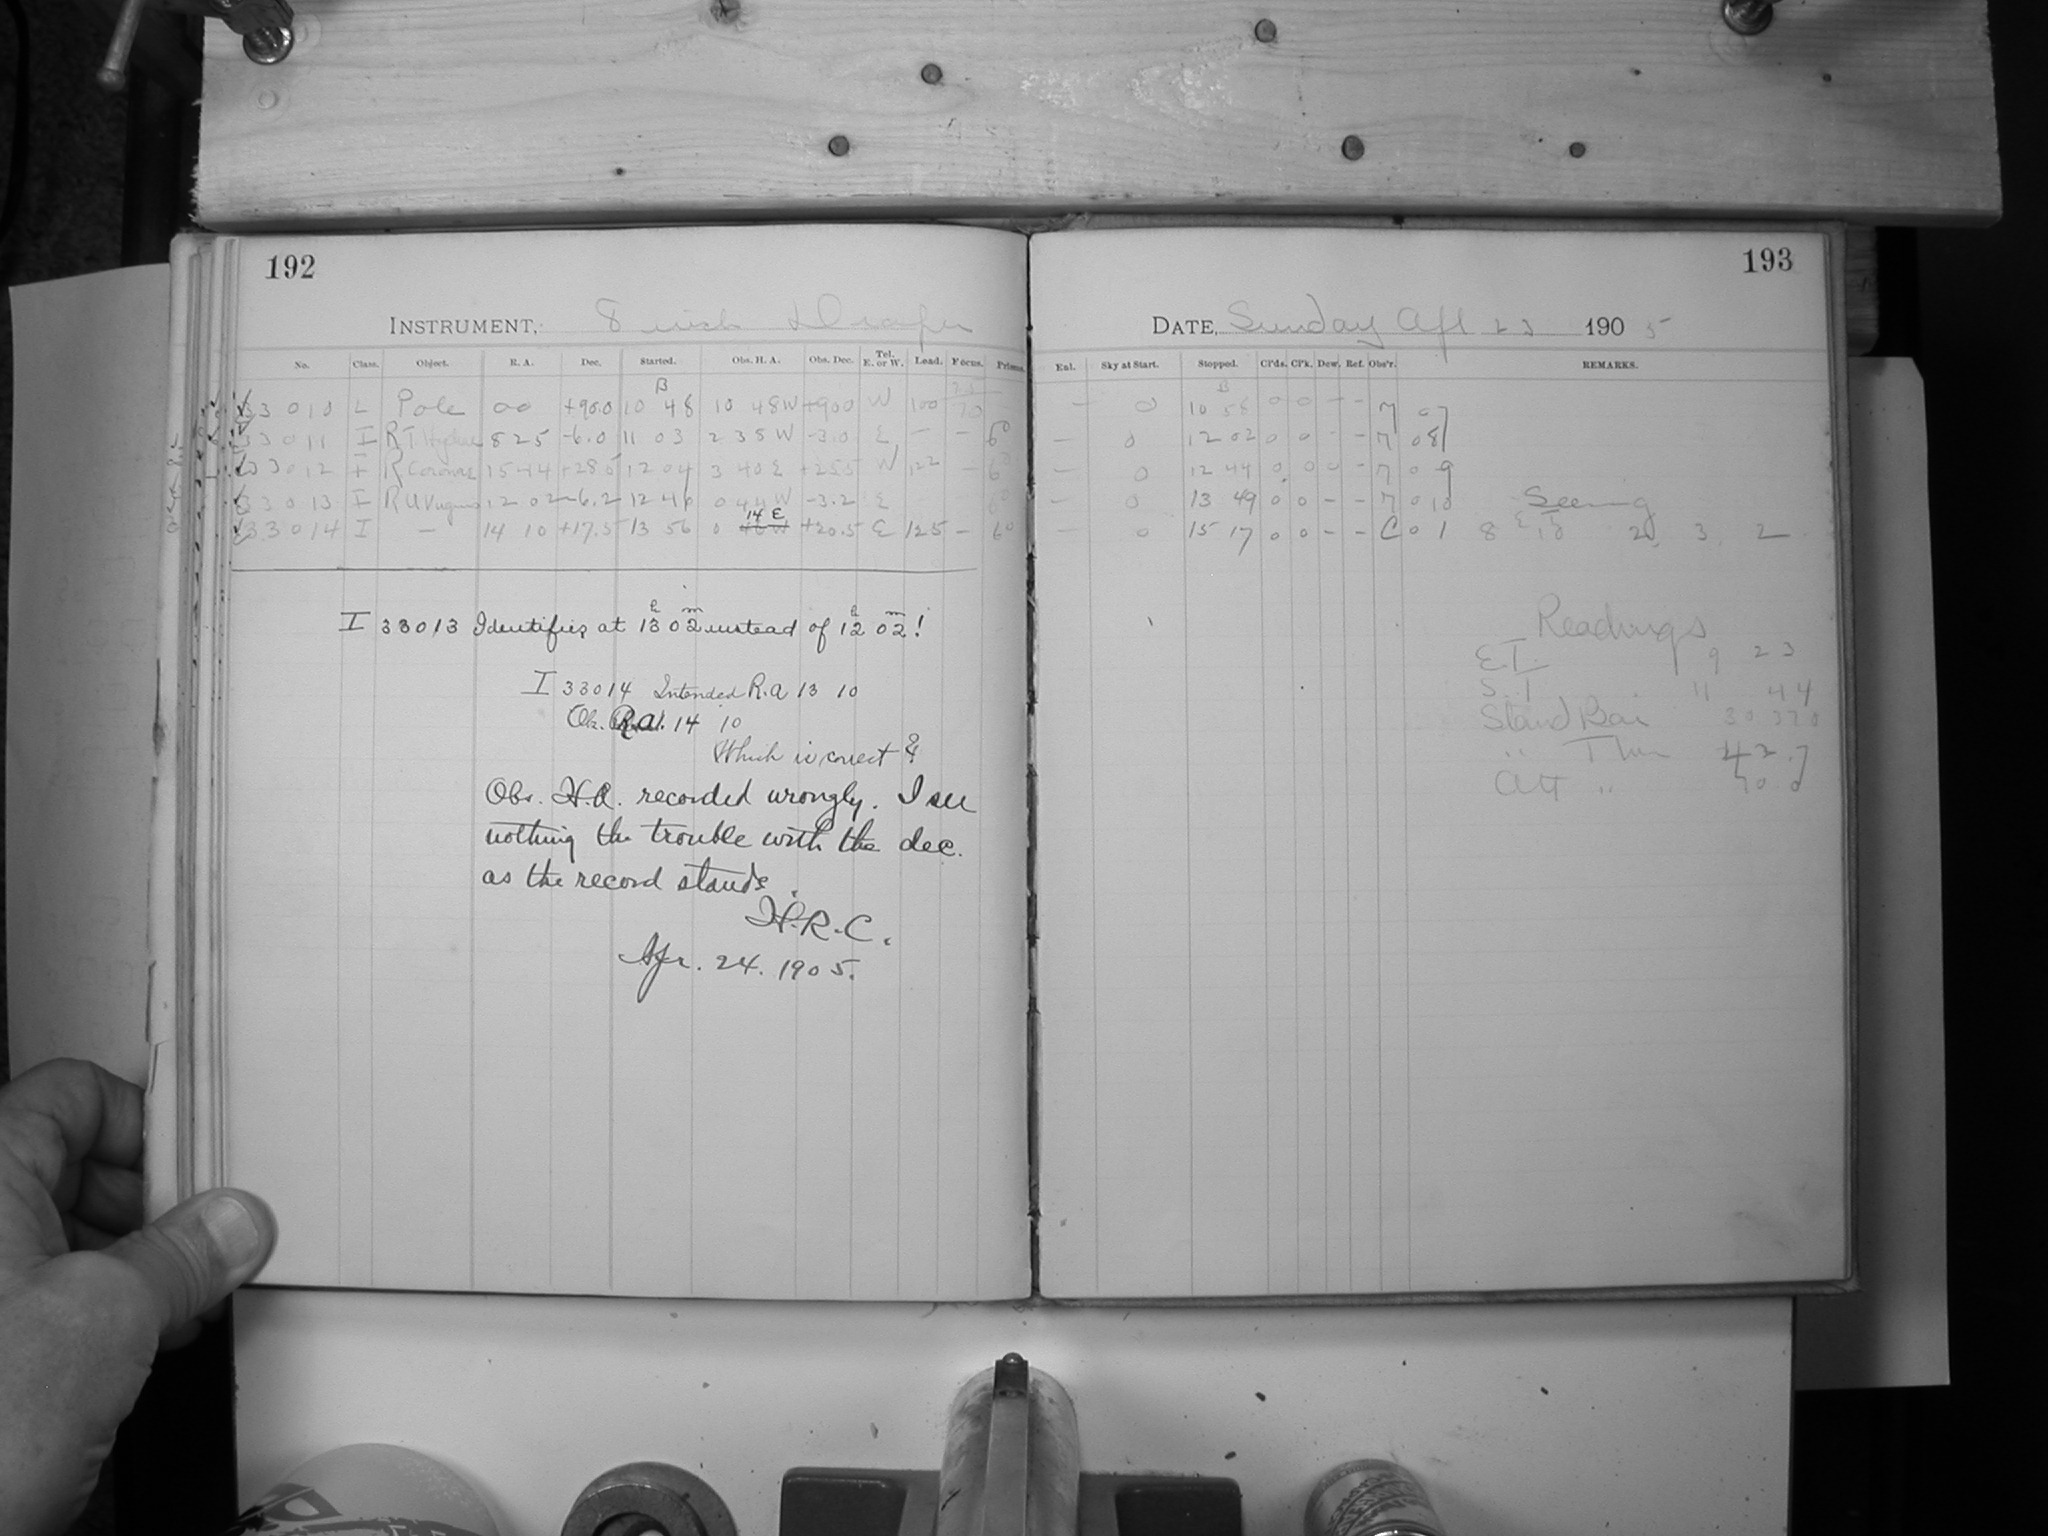 192
INSTRUMENT, 8 inch Draper
No. Class. Object. R. A. Dec. Started. Obs. H. A. Obs. Dec. Tel. E. or W. Load. Focus. Prisms.
B
33010 L Pole 00 +90.0 10 48 10 48W +90.0 W 100 70
33011 I R T Hydrae 8 25 -6.0 11 03 2 38 W -3.0 E — — 6°
33012 I R Coronae 15 44 +28.5 12 04 3 40 E +25.5 W 122 — 6°
33013 I R U Virginis 12 02 -6.2 12 46 0 44 W -3.2 E 6°
14 E
33014 I — 14 10 +17.5 13 56 0 +20.5 E 125 — 6°
I 33013 Identifies at 13h 02m instead of 12h 02m!
I 33014 Intended R.A 13 10
Ob. R.A. 14 10
Which is correct?
Obs. H.A. recorded wrongly. I see
nothing the trouble with the dec.
as the record stands.
H.R.C.
Apr. 24. 1905.
193
DATE, Sunday Apl 23 1905
Enl. Sky at Start. Stopped. Cl'ds. Cl'k. Dew. Ref. Obs'r. REMARKS.
B
— 0 10 58 0 0 - - 07
— 0 12 02 0 0 - - 08
— 0 12 44 0 0 0 - 09
— 0 13 49 0 0 - - 010 Seeing
— 0 15 17 0 0 - - C 01 8 E 18 2 3 2
Readings
E T 9 23
S. T 11 44
Stand Bar 30 370
" Ther 43.7
Att " 70.0